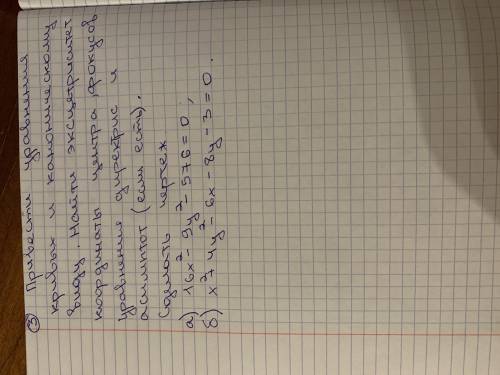 ③ Привести уравнения
кривых к каноническому
виду. Найти эксцентриситет
координаты центра, фокусов
уравнения директрис и
асимптот (если есть).
Сделать чертеж
а) 16x² - 9y² - 576 = 0;
б) x² + 4y² - 6x - 8y - 3 = 0.